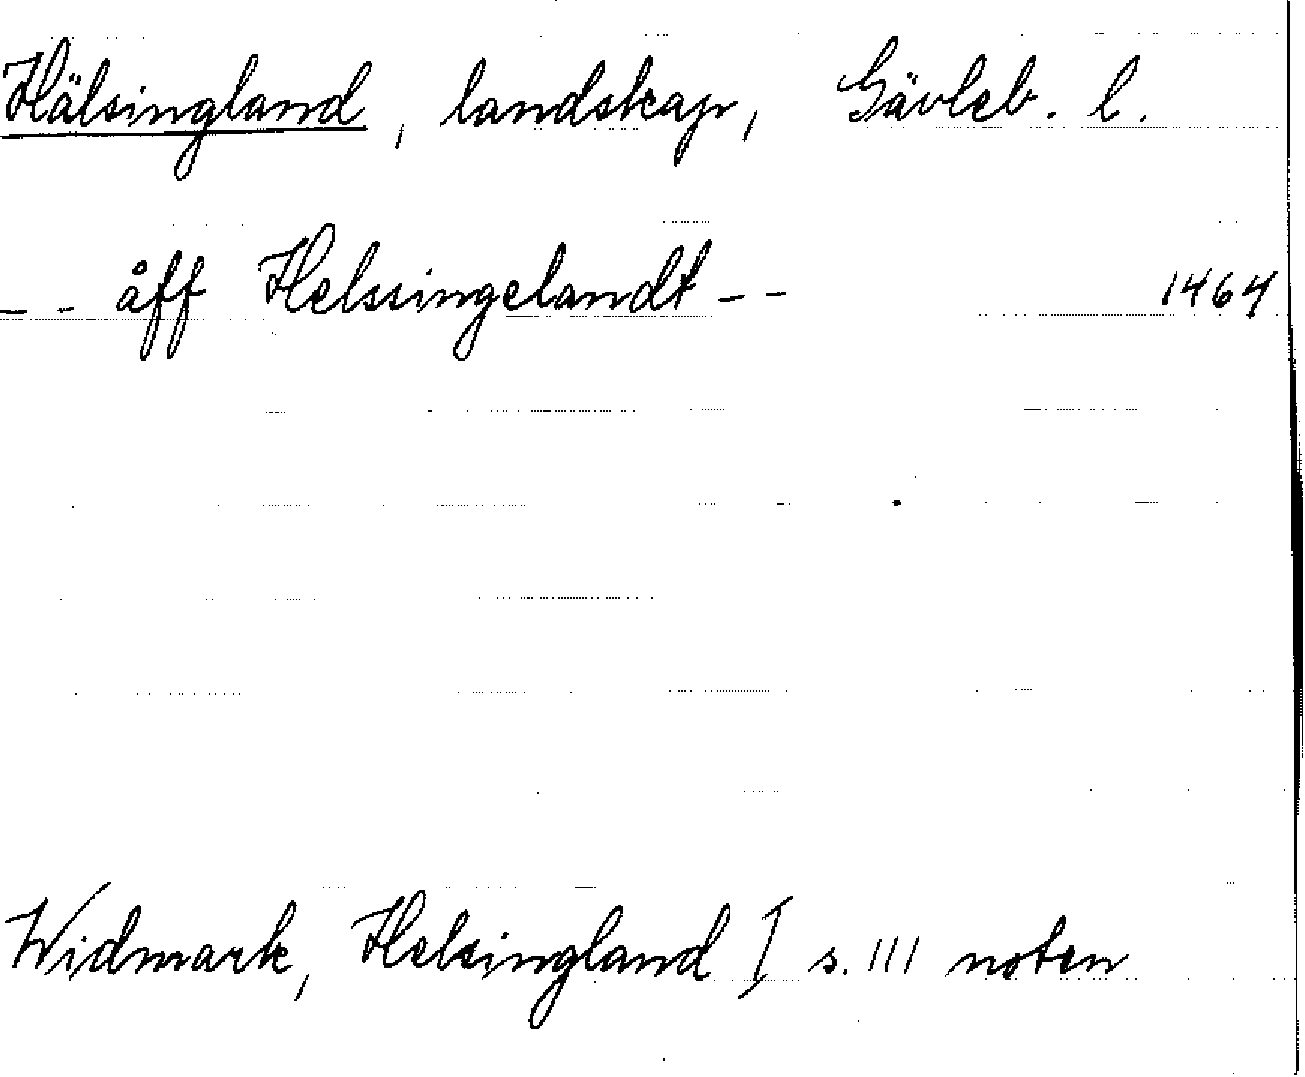 Hälsingland, landskap, Gävleb. l.
-- åff Helssingelandt -- 1464
Widmark, Helsingland I s. 111 noten